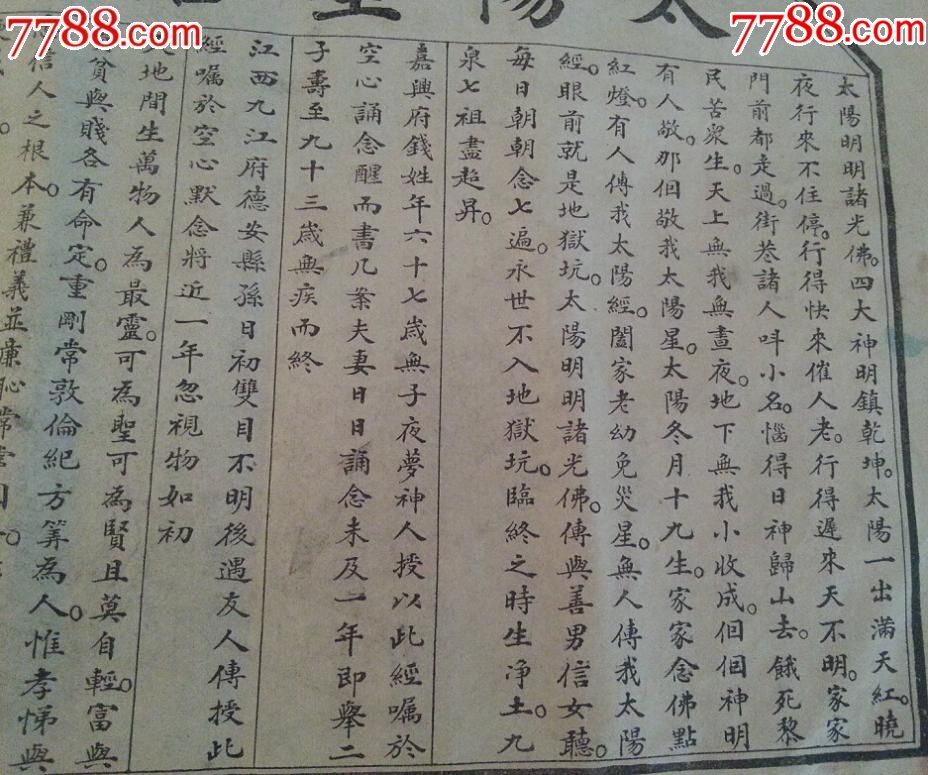 太陽
太陽明明諸光佛。四大神明鎮乾坤。太陽一出滿天紅。曉
夜行來不住停。行得快來催人老。行得遲來天不明。家家
門前都走過。街巷諸人呌小名。惱得日神歸山去。餓死黎
民苦衆生。天上無我無晝夜。地下無我小收成。佪佪神明
有人敬。那佪敬我太陽星。太陽冬月十九生。家家念佛點
紅燈。有人傳我太陽經。闔家老幼免災星。無人傳我太陽
經。眼前就是地獄坑。太陽明明諸光佛。傳與善男信女聽。
每日朝朝念七遍。永世不入地獄坑。臨終之時生净土。九
泉七祖盡超昇。
嘉興府錢姓年六十七歲無子夜夢神人授以此經囑於
空心誦念醒而書几案夫妻日日誦念未及一年即舉二
子壽至九十三歲無疾而終
江西九江府德安縣孫日初雙目不明後遇友人傳授此
經囑於空心默念將近一年忽視物如初
地間生萬物人為最靈。可為聖可為賢且莫自輕。富與
貧與賤各有命定。重剛常敦倫紀方筭為人。惟孝悌與
信人之根本。兼禮義並廉恥常
7788.com
7788.com